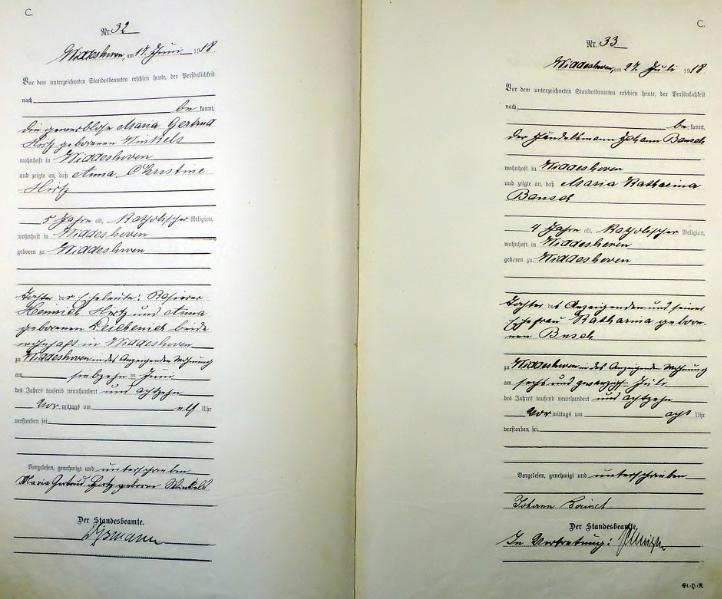 C.
Nr. 32
Widdeshoven, am 17. Juni 1918
Vor dem unterzeichneten Standesbeamten erschien heute, der Persönlichkeit
nach
be kannt,
die gewerblose Maria Gertrud
geborenen Winkels
wohnhaft in Widdeshoven
und zeigte an, daß Anna Christine
5 Jahre alt, Katholischer Religion,
wohnhaft in Widdeshoven
geboren zu Widdeshoven
Tochter der Eheleute:
Heinrich und Anna
geborenen beide
wohnhaft in Widdeshoven
zu Widdeshoven in des Anzeigenden Wohnung
am siebzehn Juni
des Jahres tausend neunhundert und achtzehn
Vor mittags um elf Uhr
verstorben sei
Vorgelesen, genehmigt und unterschrieben
Maria Gertrud geborene Winkels
Der Standesbeamte.
C.
Nr. 33
Widdeshoven, am 27. Juli 1918
Vor dem unterzeichneten Standesbeamten erschien heute, der Persönlichkeit
nach
be kannt,
der Handelsmann Johann
wohnhaft in Widdeshoven
und zeigte an, daß Maria Katharina
4 Jahre alt, Katholischer Religion,
wohnhaft in Widdeshoven
geboren zu Widdeshoven
Tochter des Anzeigenden und seiner
Ehefrau Katharina gebore-
nen
zu Widdeshoven in des Anzeigenden Wohnung
am sechs und zwanzigsten Juli
des Jahres tausend neunhundert und achtzehn
Vor mittags um acht Uhr
verstorben sei
Vorgelesen, genehmigt und unterschrieben
Johann
Der Standesbeamte.
In Vertretung: